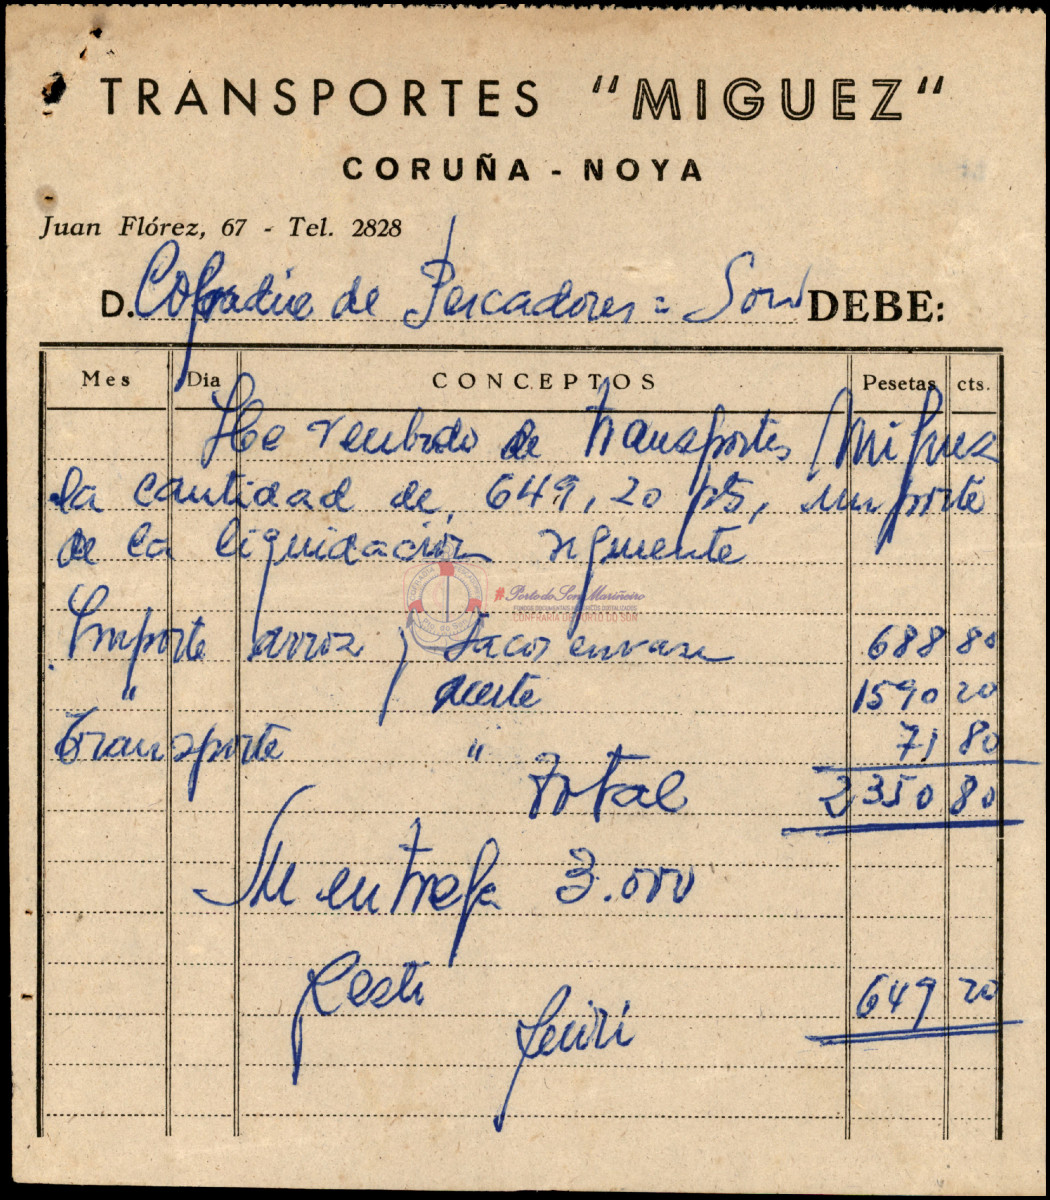 TRANSPORTES "MIGUEZ"
CORUÑA - NOYA
Juan Flórez, 67 - Tel. 2828
D. Cofradia de Pescadores = Son DEBE:
Mes Dia CONCEPTOS Pesetas cts.
He recibido de Transportes Miguez
la cantidad de, 649,20 pts, importe
de la liquidación siguiente
#PortodoSonMariñeiro
CONFRARÍA DE PORTO DO SON
Importe arroz y sacos envase 688 80
" aceite 1590 20
Transporte " 71 80
Total 2350 80
Mi entrega 3.000
Resto 649 20